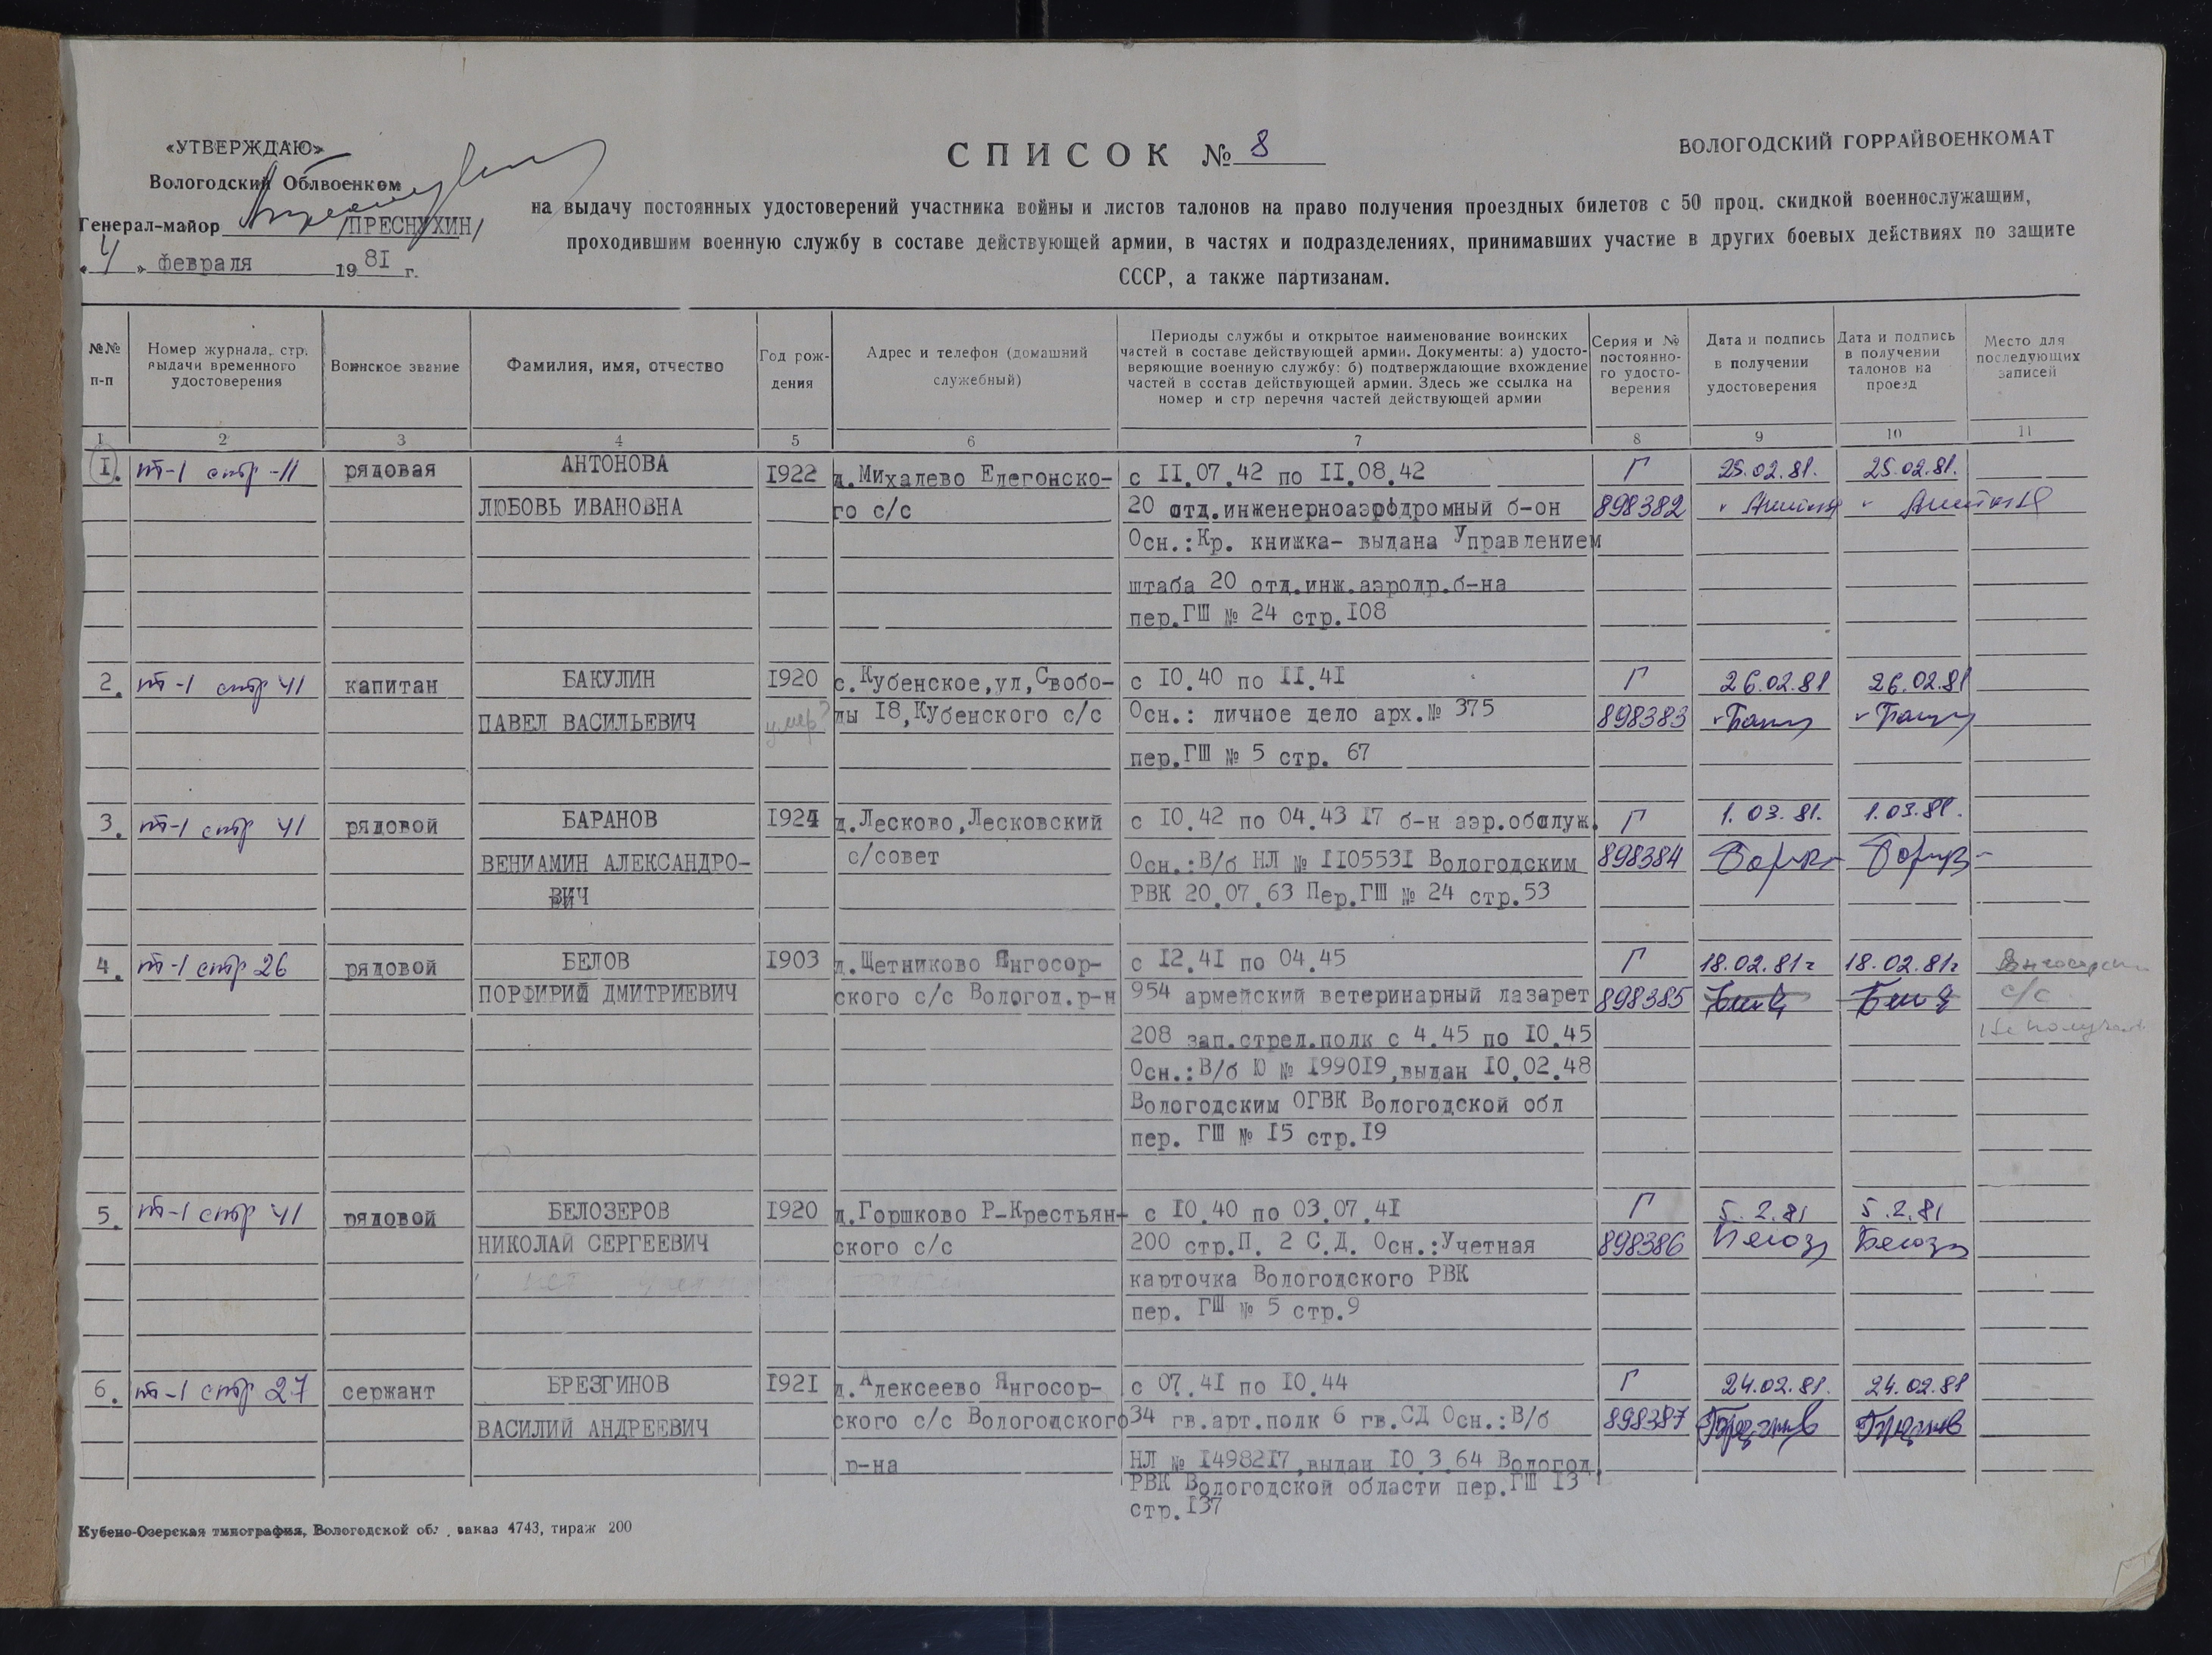 «УТВЕРЖДАЮ»
Вологодский Облвоенком
Генерал-майор /ПРЕСНУХИН/
«4» февраля 1981 г.
СПИСОК № 8
ВОЛОГОДСКИЙ ГОРРАЙВОЕНКОМАТ
на выдачу постоянных удостоверений участника войны и листов талонов на право получения проездных билетов с 50 проц. скидкой военнослужащим,
проходившим военную службу в составе действующей армии, в частях и подразделениях, принимавших участие в других боевых действиях по защите
СССР, а также партизанам.
№№
п-п
Номер журнала, стр.
выдачи временного
удостоверения
Воинское звание
Фамилия, имя, отчество
Год рож-
дения
Адрес и телефон (домашний
служебный)
Периоды службы и открытое наименование воинских
частей в составе действующей армии. Документы: а) удосто-
веряющие военную службу: б) подтверждающие вхождение
частей в состав действующей армии. Здесь же ссылка на
номер и стр перечня частей действующей армии
Серия и №
постоянно-
го удосто-
верения
Дата и подпись
в получении
удостоверения
Дата и подпись
в получении
талонов на
проезд
Место для
последующих
записей
1 2 3 4 5 6 7 8 9 10 11
I. т-1 стр-11 рядовая АНТОНОВА 1922 д.Михалево Елегонско- с II.07.42 по II.08.42 Г 25.02.81. 25.02.81.
ЛЮБОВЬ ИВАНОВНА го с/с 20 отд.инженерноаэродромный б-он 898382
Осн.:Кр. книжка- выдана Управлением
штаба 20 отд.инж.аэродр.б-на
пер.ГШ № 24 стр.I08
2. т-1 стр 41 капитан БАКУЛИН 1920 с.Кубенское,ул,Свобо- с I0.40 по II.4I Г 26.02.81 26.02.81
ПАВЕЛ ВАСИЛЬЕВИЧ умер? ды I8,Кубенского с/с Осн.: личное дело арх.№ 375 898383
пер.ГШ № 5 стр. 67
3. т-1 стр 41 рядовой БАРАНОВ 1924 д.Лесково,Лесковский с I0.42 по 04.43 I7 б-н аэр.обслуж. Г 1.03.81. 1.03.81.
ВЕНИАМИН АЛЕКСАНДРО- с/совет Осн.:В/б НЛ № II0553I Вологодским 898384
ВИЧ РВК 20.07.63 Пер.ГШ № 24 стр.53
4. т-1 стр 26 рядовой БЕЛОВ 1903 д.Щетниково Янгосор- с I2.4I по 04.45 Г 18.02.81г 18.02.81г
ПОРФИРИЙ ДМИТРИЕВИЧ ского с/с Вологод.р-н 954 армейский ветеринарный лазарет 898385 с/с
208 зап.стрел.полк с 4.45 по I0.45
Осн.:В/б Ю № I990I9,выдан I0.02.48
Вологодским ОГВК Вологодской обл
пер. ГШ № I5 стр.I9
5. т-1 стр 41 рядовой БЕЛОЗЕРОВ 1920 д.Горшково Р-Крестьян- с I0.40 по 03.07.4I Г 5.2.81 5.2.81
НИКОЛАЙ СЕРГЕЕВИЧ ского с/с 200 стр.П. 2 С.Д. Осн.:Учетная 898386
карточка Вологодского РВК
пер. ГШ № 5 стр.9
6. т-1 стр 27 сержант БРЕЗГИНОВ 1921 д.Алексеево Янгосор- с 07.4I по I0.44 Г 24.02.81. 24.02.81
ВАСИЛИЙ АНДРЕЕВИЧ ского с/с Вологодского 34 гв.арт.полк 6 гв.СД Осн.:В/б 898387
р-на НЛ № I4982I7,выдан I0.3.64 Вологод.
РВК Вологодской области пер.ГШ I3
стр.I37
Кубено-Озерская типография, Вологодской обл., заказ 4743, тираж 200